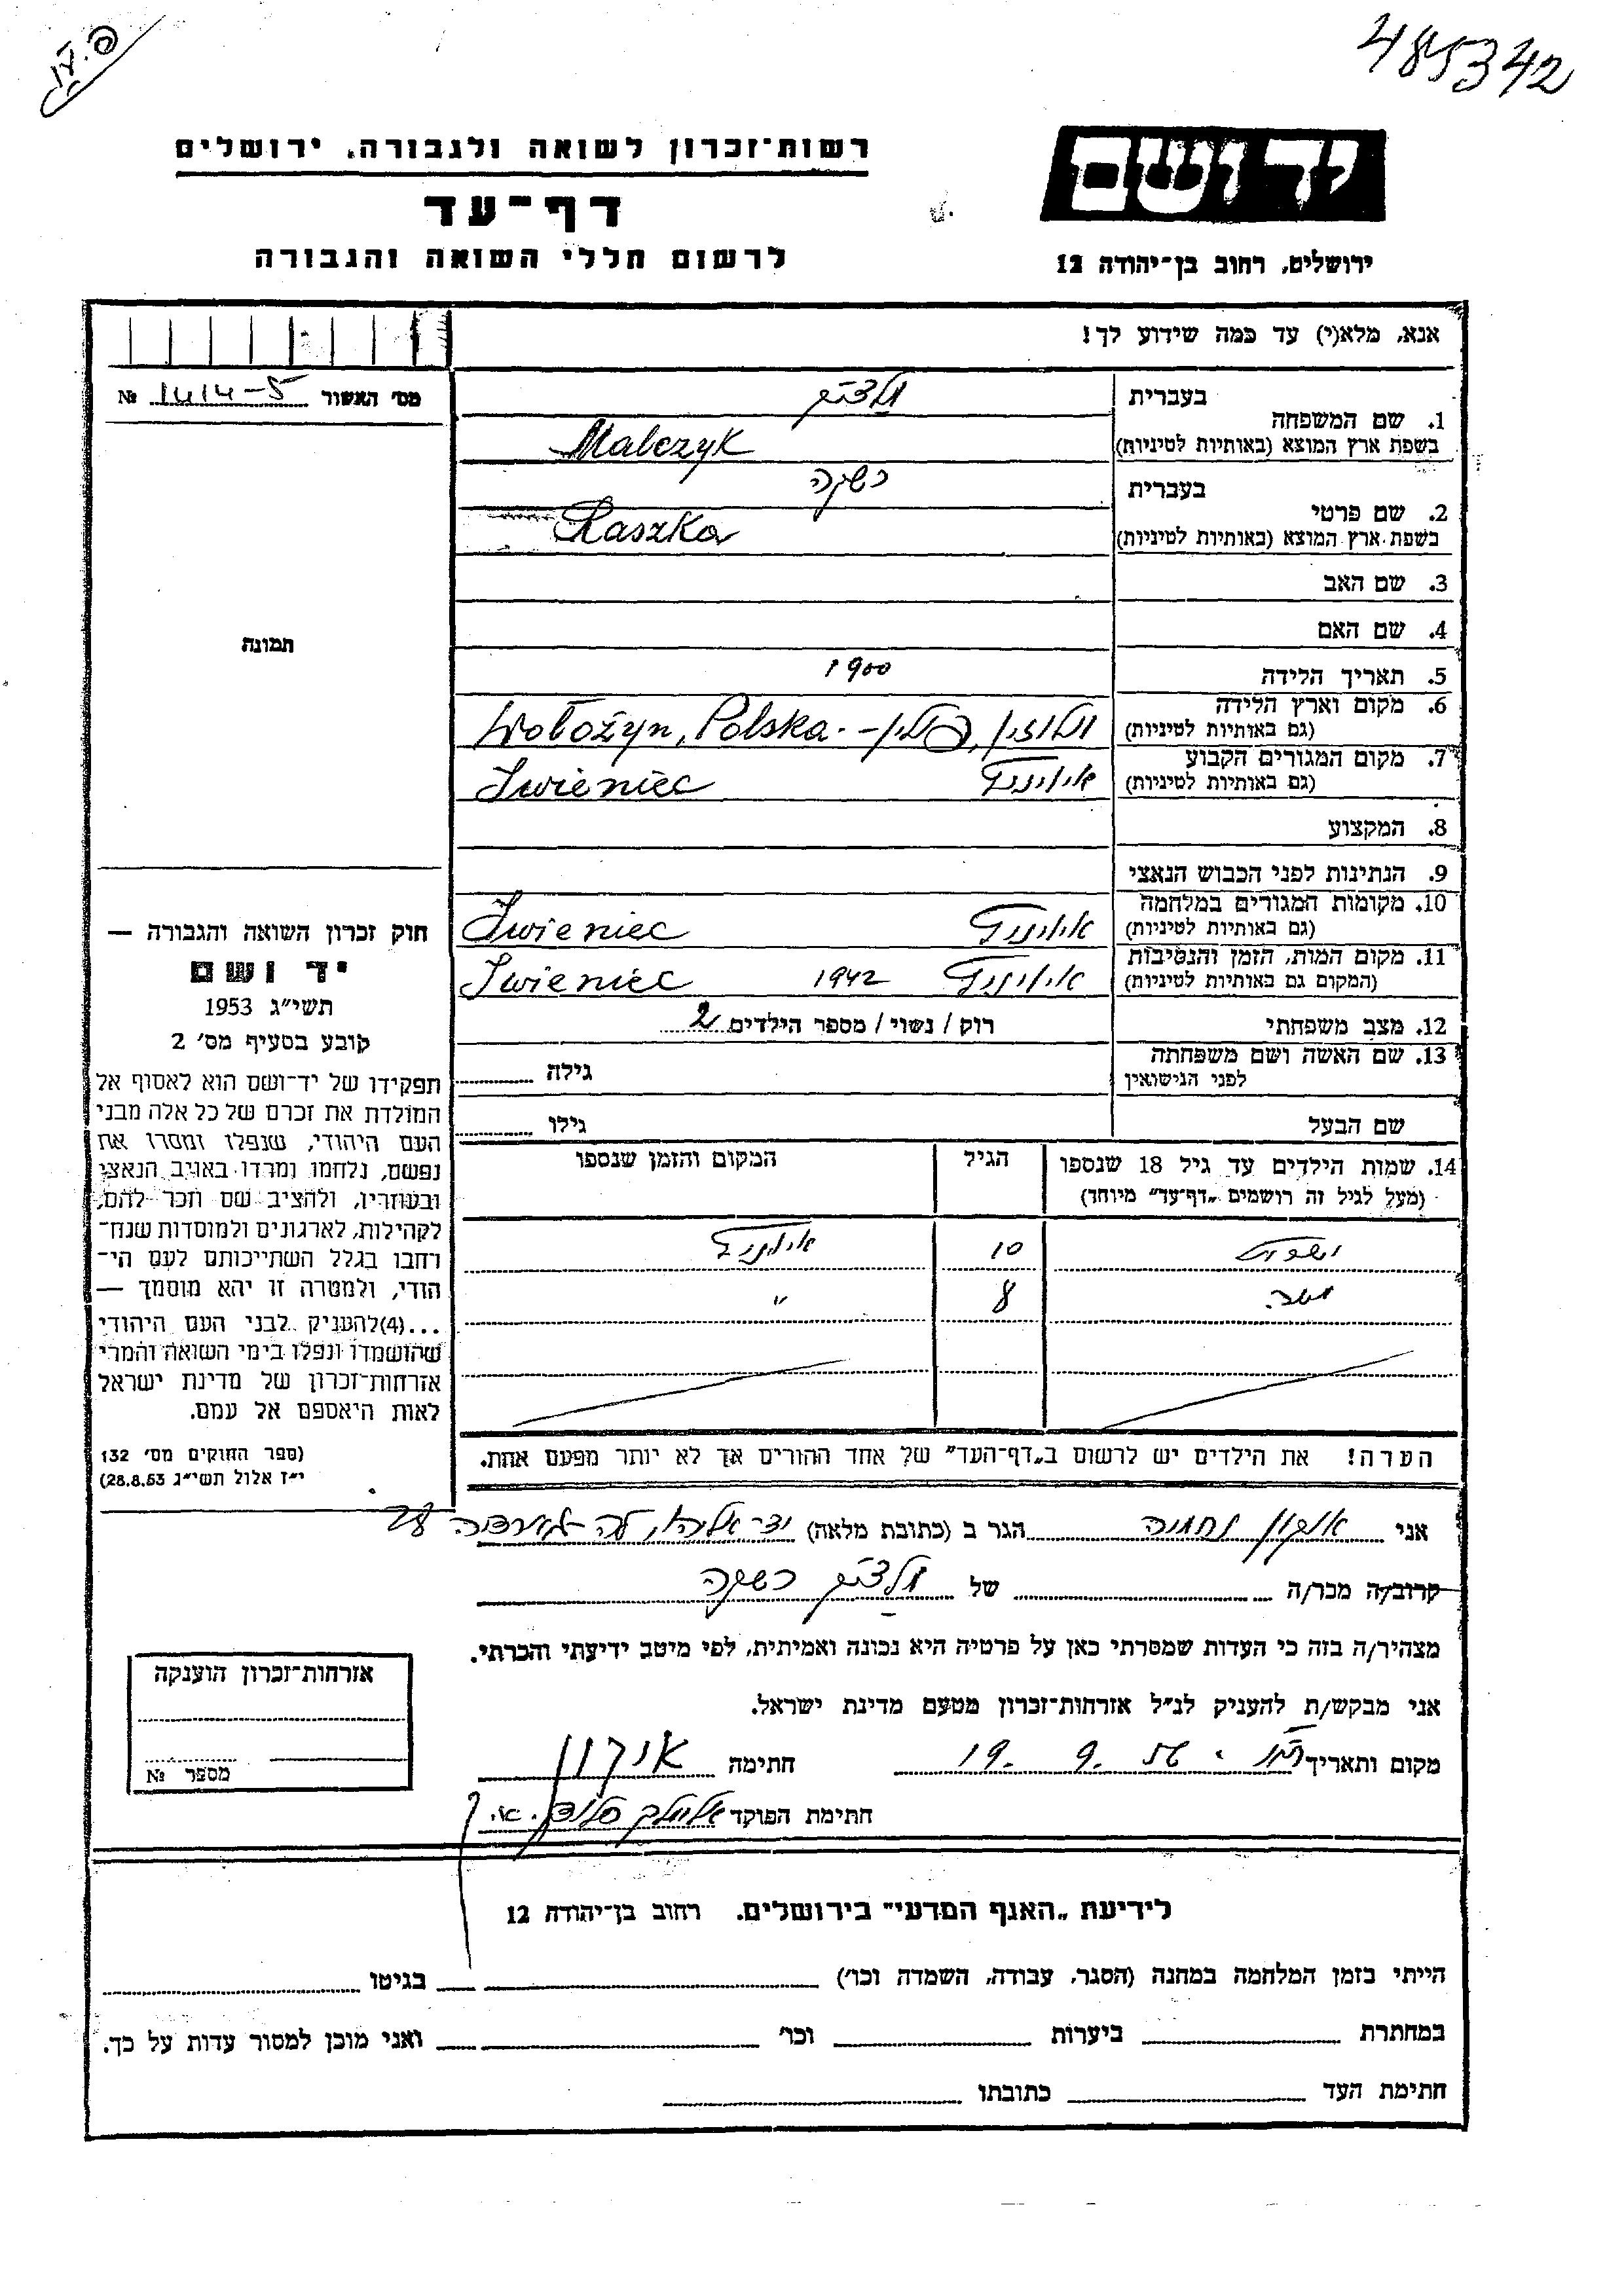 485342
רשות־זכרון לשואה ולגבורה, ירושלים
יד ושם
דף־עד
לרשום חללי השואה והגבורה
ירושלים, רחוב בן־יהודה 12
אנא, מלא(י) עד כמה שידוע לך!
מס׳ האשור 1414-5 №
בעברית
1. שם המשפחה
בשפת ארץ המוצא (באותיות לטיניות) Malczyk
בעברית רשקה
2. שם פרטי
בשפת ארץ המוצא (באותיות לטיניות) Raszka
3. שם האב
4. שם האם
תמונה
5. תאריך הלידה 1900
6. מקום וארץ הלידה
(גם באותיות לטיניות) וולוז'ין, פולין - Wołożyn, Polska.
7. מקום המגורים הקבוע
(גם באותיות לטיניות) איווניץ Iwieniec
8. המקצוע
9. הנתינות לפני הכבוש הנאצי
10. מקומות המגורים במלחמה
(גם באותיות לטיניות) איווניץ Iwieniec
11. מקום המות, הזמן והנסיבות
(המקום גם באותיות לטיניות) איווניץ 1942 Iwieniec
12. מצב משפחתי רוק / נשוי / מספר הילדים 2
13. שם האשה ושם משפחתה
לפני הנישואין גילה
שם הבעל גילו
14. שמות הילדים עד גיל 18 שנספו
(מעל לגיל זה רושמים „דף־עד" מיוחד)
הגיל
המקום והזמן שנספו
10 איווניץ
8 "
הערה! את הילדים יש לרשום ב„דף־העד" של אחד ההורים אך לא יותר מפעם אחת.
חוק זכרון השואה והגבורה —
יד ושם
תשי״ג 1953
קובע בסעיף מס׳ 2
תפקידו של יד־ושם הוא לאסוף אל
המולדת את זכרם של כל אלה מבני
העם היהודי, שנפלו ומסרו את
נפשם, נלחמו ומרדו באויב הנאצי
ובעוזריו, ולהציב שם וזכר להם,
לקהילות, לארגונים ולמוסדות שנח־
רחבו בגלל השתייכותם לעם הי־
הודי, ולמטרה זו יהא מוסמך —
...(4)להעניק לבני העם היהודי
שהושמדו ונפלו בימי השואה והמרי
אזרחות־זכרון של מדינת ישראל
לאות היאספם אל עמם.
(ספר החוקים מס׳ 132
י״ז אלול תשי״ג 28.8.53)
אני נחמיה הגר ב (כתובת מלאה) יד אליהו,
קרוב/ה מכר/ה של רשקה
מצהיר/ה בזה כי העדות שמסרתי כאן על פרטיה היא נכונה ואמיתית, לפי מיטב ידיעתי והכרתי.
אני מבקש/ת להעניק לנ״ל אזרחות־זכרון מטעם מדינת ישראל.
מקום ותאריך 19. 9. חתימה
חתימת הפוקד
אזרחות־זכרון הוענקה
מספר №
לידיעת „האגף המדעי" בירושלים. רחוב בן־יהודה 12
הייתי בזמן המלחמה במחנה (הסגר, עבודה, השמדה וכו׳) בגיטו
במחתרת ביערות וכו׳ ואני מוכן למסור עדות על כך.
חתימת העד כתובתו